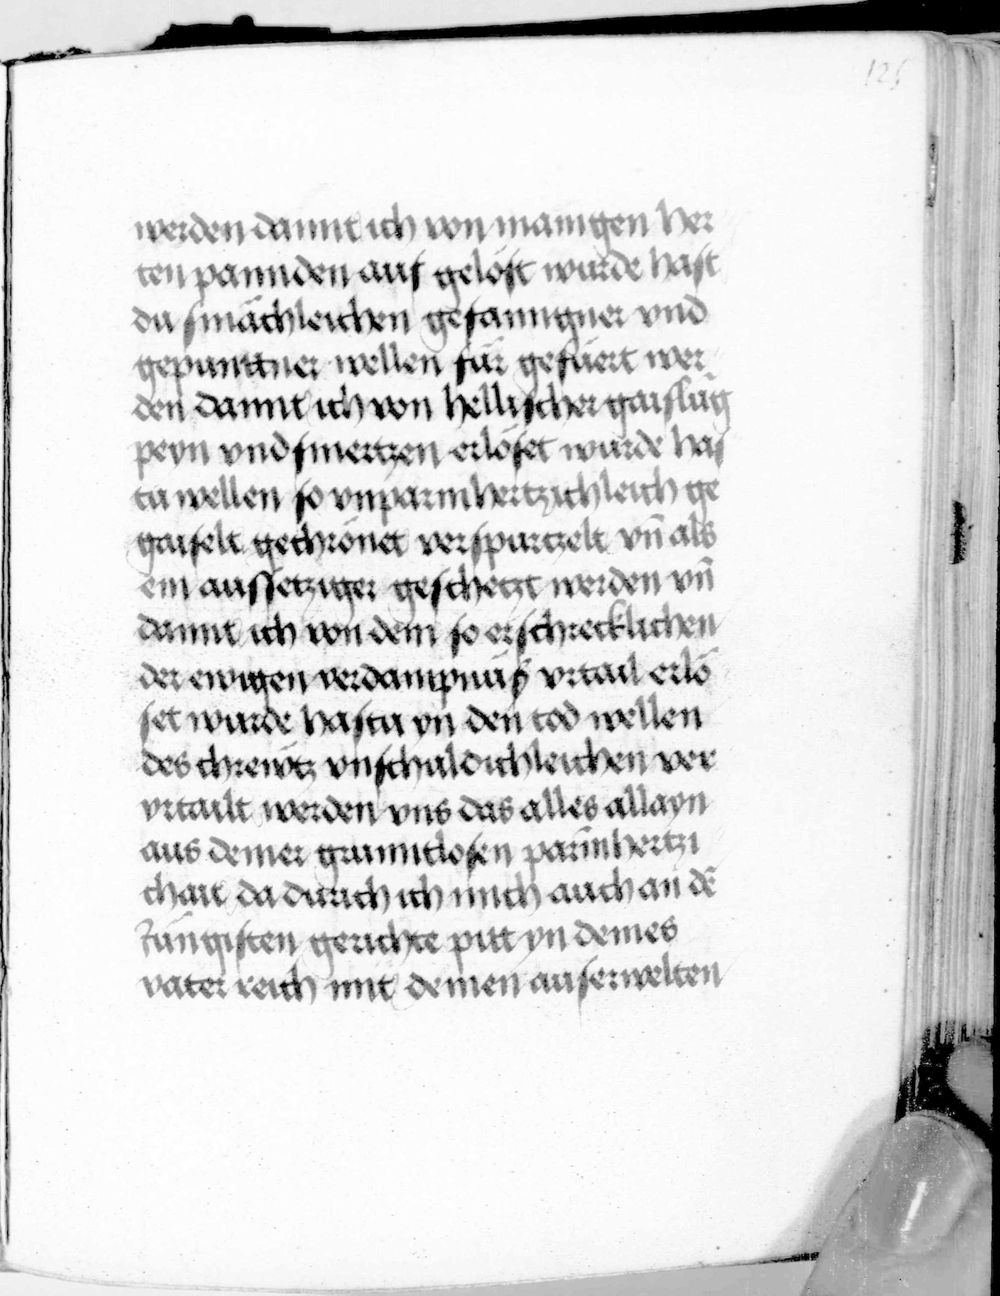 125
werden damit ich von manigen her
ten pannden auf gelöst wurde hast
du smächleichen gefanngner vnd
gepunttner wellen für gefüert wer
den damit ich von hellischer gaislūg
peyn vnd smertzen erlöset wurde has
tu wellen so vnparmhertzichleich ge
gaiselt gechrönet verspürtzelt vn̄ als
ein aussetziger geschetzt werden vn̄
damit ich von dem so erschrecklichen
der ewigen verdampnüß vrtail erlö
set wurde hastu yn den tod wellen
des chrewtz vnschuldichleichen ver
vrtailt werden vns das alles allayn
aus deiner grunntlosen parmhertzi
chait da durich ich mich auch an dē
Jüngisten gerichte pitt yn deines
vater reich mit deinen auserwelten